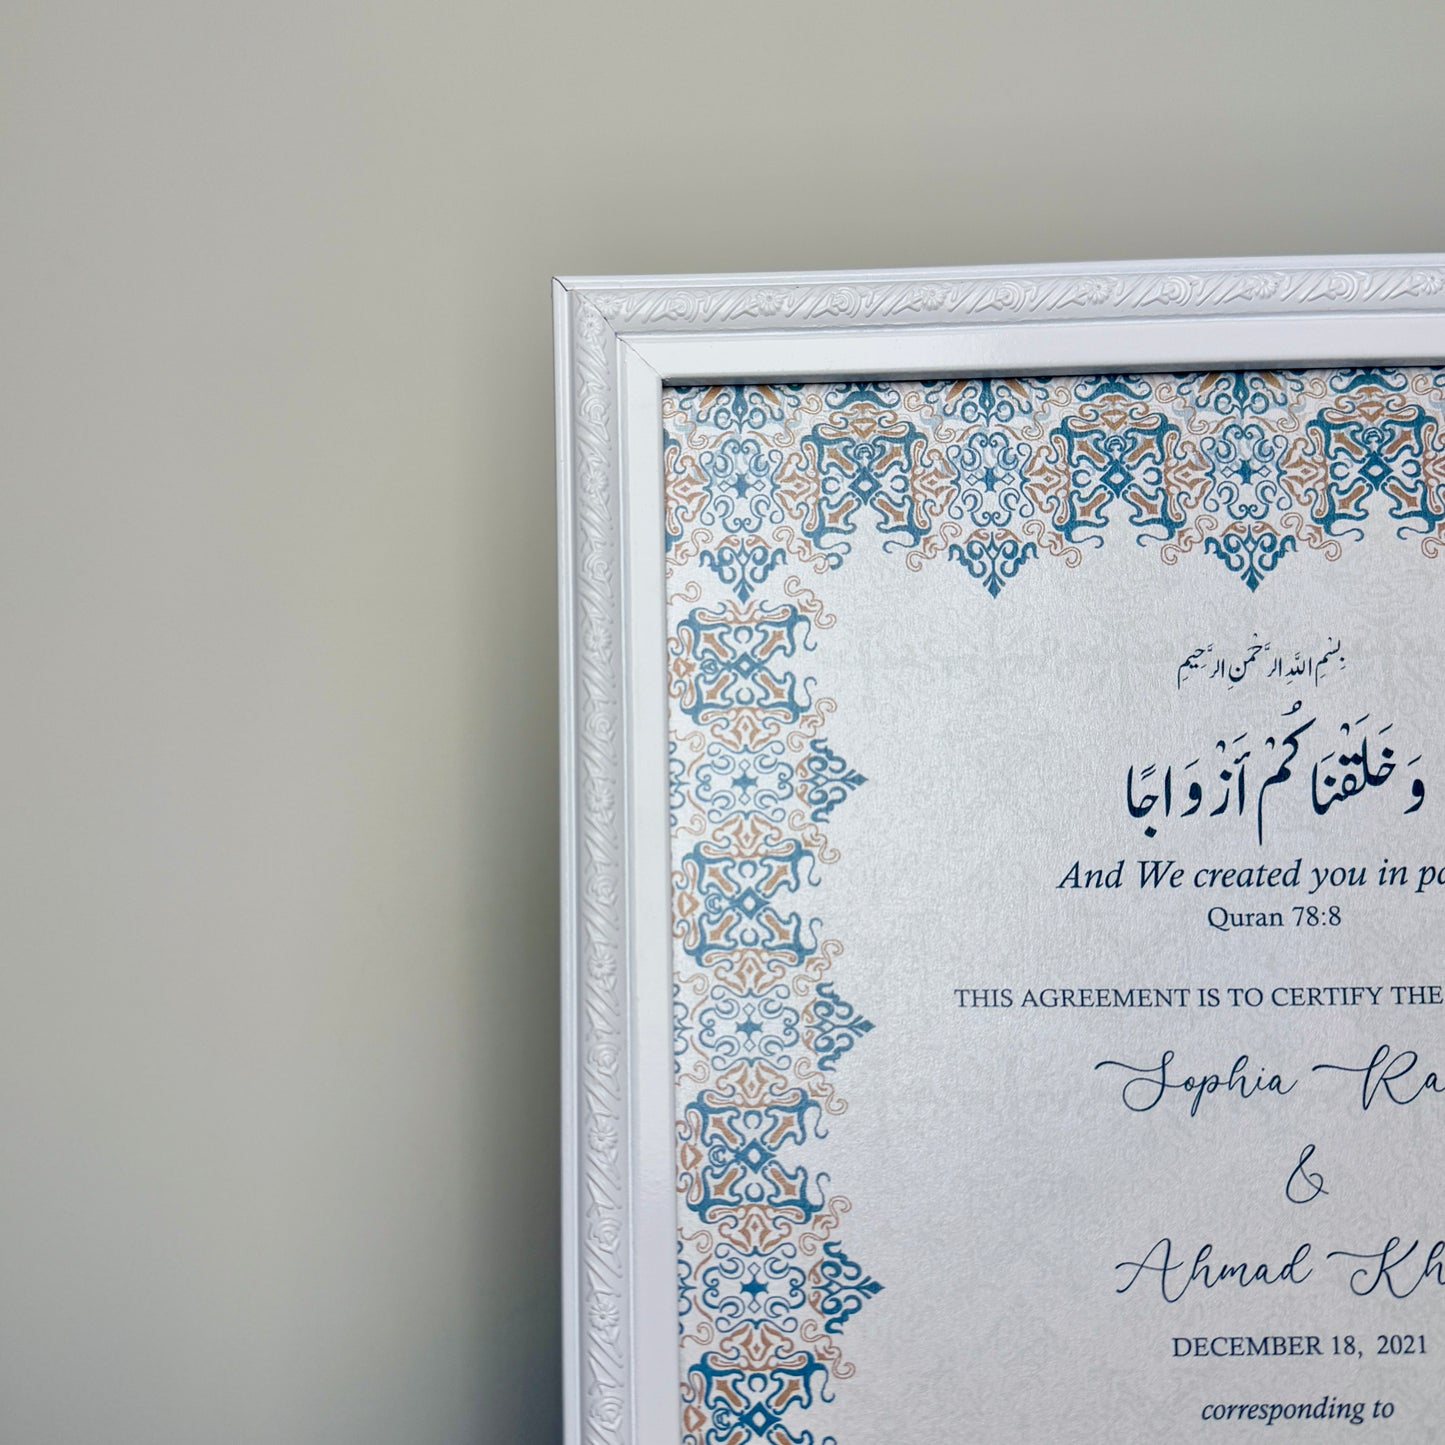 بِسْمِ اللَّهِ الرَّحْمَنِ الرَّحِيمِ
وَخَلَقْنَاكُمْ أَزْوَاجًا
And We created you in
Quran 78:8
THIS AGREEMENT IS TO CERTIFY THE
Sophia
&
Ahmad
DECEMBER 18, 2021
corresponding to